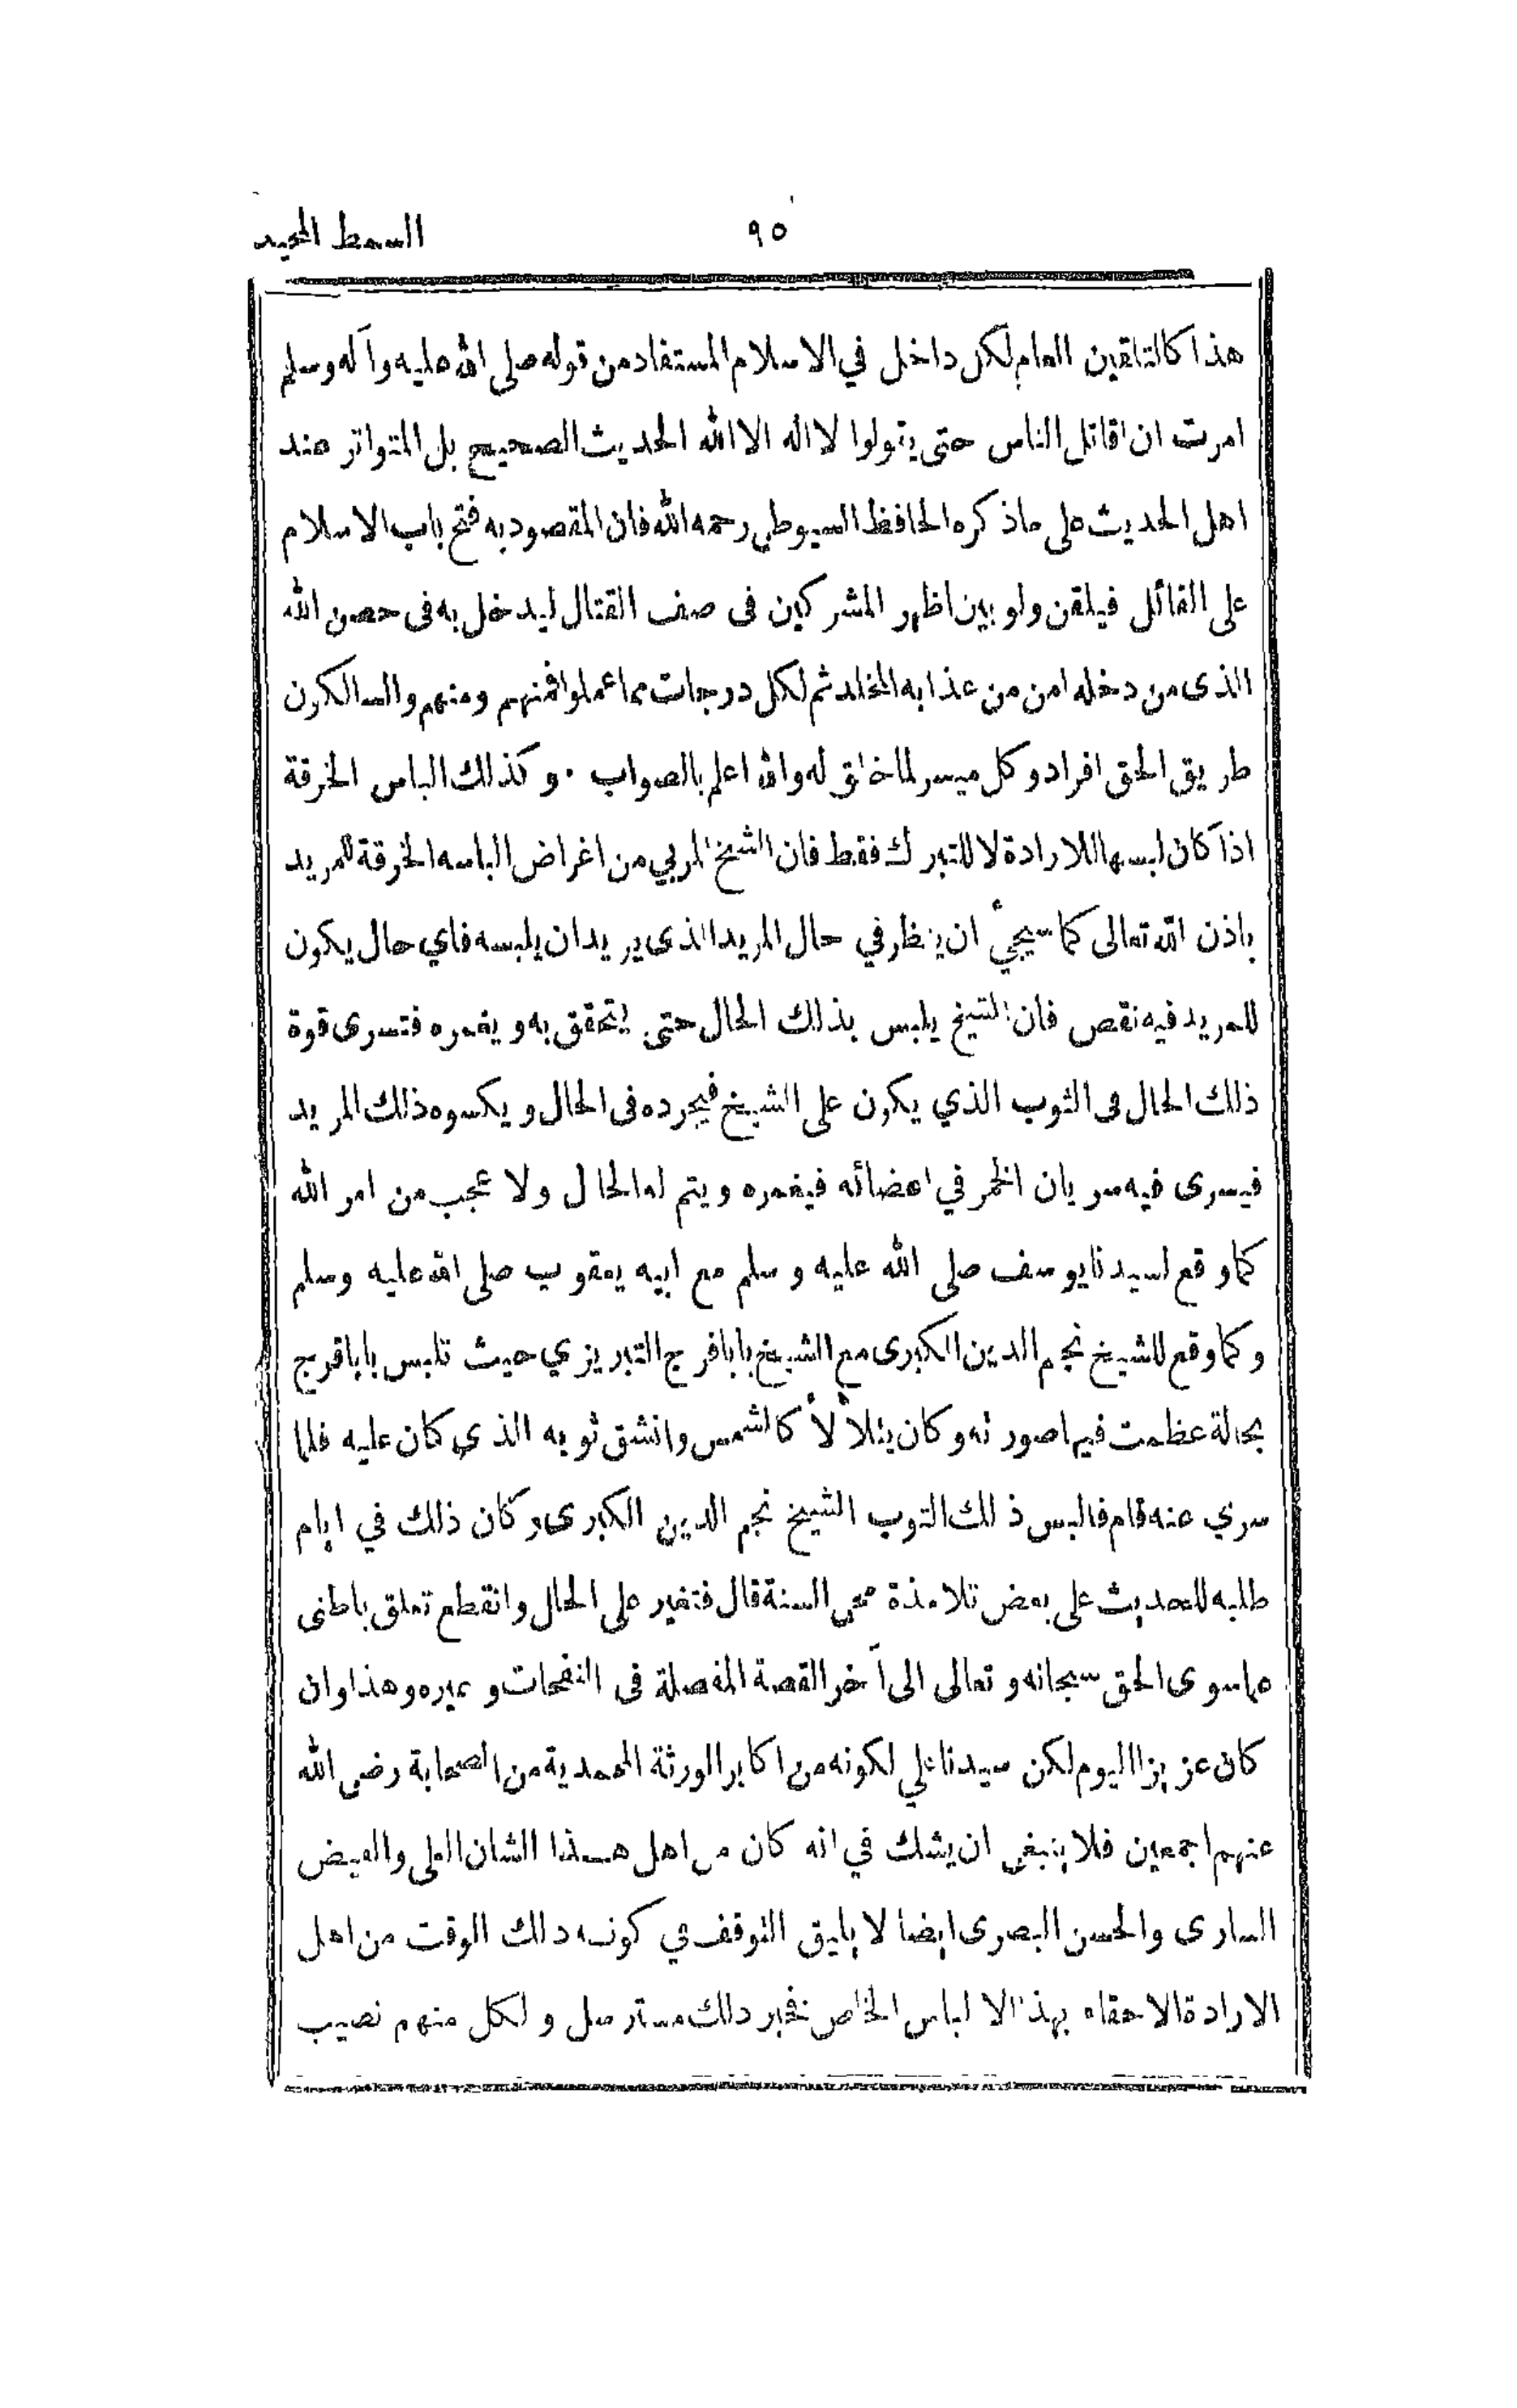 السمط المجيد
٩٥
هذا كالتلقين العام لكل داخل في الاسلام المستفاد من قوله صلى الله عليه وآله وسلم
امرت ان اقاتل الناس حتى يقولوا لا اله الا الله الحديث الصحيح بل المتواتر عند
اهل الحديث على ماذكره الحافظ السيوطي رحمه الله فان المقصود به فتح باب الاسلام
على القائل فيلقن ولو بين اظهر المشركين فى صف القتال ليدخل به فى حصن الله
الذى من دخله امن من عذابه المخلد ثم لكل درجات مما عملوا فمنهم ومنهم والسالكون
طريق الحق افراد وكل ميسر لما خلق له والله اعلم بالصواب ۰ وكذلك الباس الخرقة
اذا كان لبسها للارادة لا للتبرك فقط فان الشيخ المربي من اغراض الباسه الخرقة للمريد
باذن الله تعالى كما سيجئ ان ينظر في حال المريد الذى يريد ان يلبسه فاي حال يكون
للمريد فيه نقص فان الشيخ يلبس بذلك الحال حتى يتحقق به و يغمره فتسرى قوة
ذلك الحال فى الثوب الذي يكون على الشيخ فيجرده فى الحال و يكسوه ذلك المريد
فيسرى فيه سريان الخمر في اعضائه فيغمره ويتم له الحال ولا عجب من امر الله
كما وقع لسيدنا يوسف صلى الله عليه وسلم مع ابيه يعقوب صلى الله عليه وسلم
وكما وقع للشيخ نجم الدين الكبرى مع الشيخ بابا فرج التبريزي حيث تلبس بابا فرج
بحالة عظمت فيها صورته وكان يتلأ لأ كالشمس وانشق ثوبه الذي كان عليه فلما
سري عنه قام فالبس ذلك الثوب الشيخ نجم الدين الكبرى وكان ذلك في ايام
طلبه للحديث على بعض تلامذة محي السنة قال فتغير على الحال وانقطع تعلق باطنى
عما سوى الحق سبحانه و تعالى الى آخر القصة المفصلة فى النفحات و غيره وهذا وان
كان عزيزا اليوم لكن سيدنا علي لكونه من اكابر الورثة المحمدية من الصحابة رضى الله
عنهم اجمعين فلا ينبغي ان يشك في انه كان من اهل هذا الشان العلى والفيض
السارى والحسن البصرى ايضا لا يليق التوقف في كونه ذلك الوقت من اهل
الارادة الاحقاء بهذا الا لباس الخاص فخبر ذلك مسترسل و لكل منهم نصيب